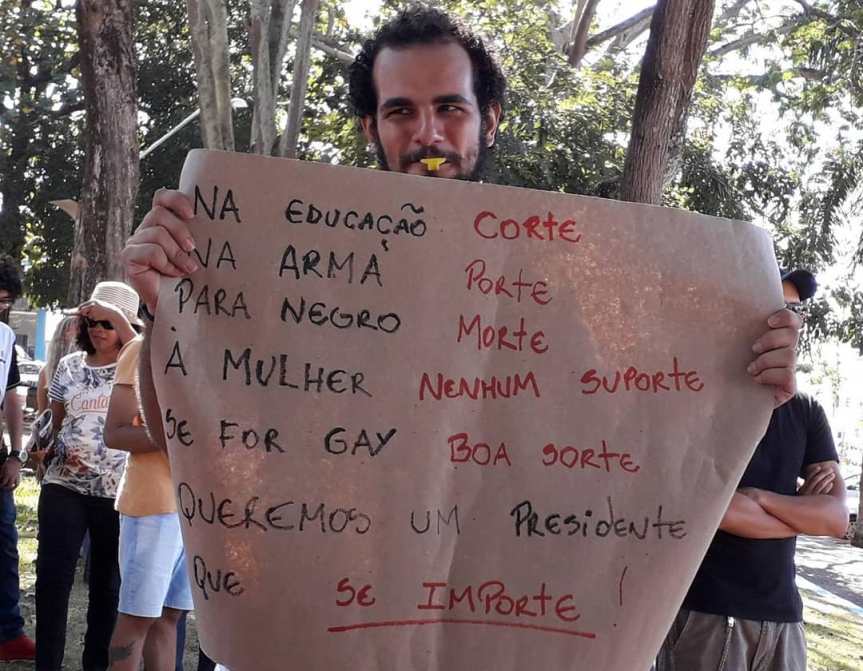 NA EDUCAÇÃO CORTE
NA ARMA PORTE
PARA NEGRO MORTE
À MULHER NENHUM SUPORTE
SE FOR GAY BOA SORTE
QUEREMOS UM PRESIDENTE
QUE SE IMPORTE!